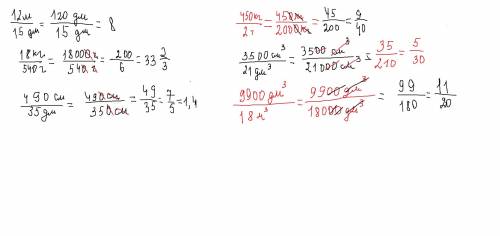 12м/15 дм = 120 дм/15 дм = 8
18 кг/540 г = 18000 г/540 г = 200/6 = 33 2/3
490 см/35 дм = 490 см/350 см = 49/35 = 7/5 = 1,4
450 кг/2 т = 450 кг/2000 кг = 45/200 = 9/40
3500 см³/21 дм³ = 3500 см³/21000 см³ = 35/210 = 5/30
9900 дм³/18 м³ = 9900 дм³/18000 дм³ = 99/180 = 11/20